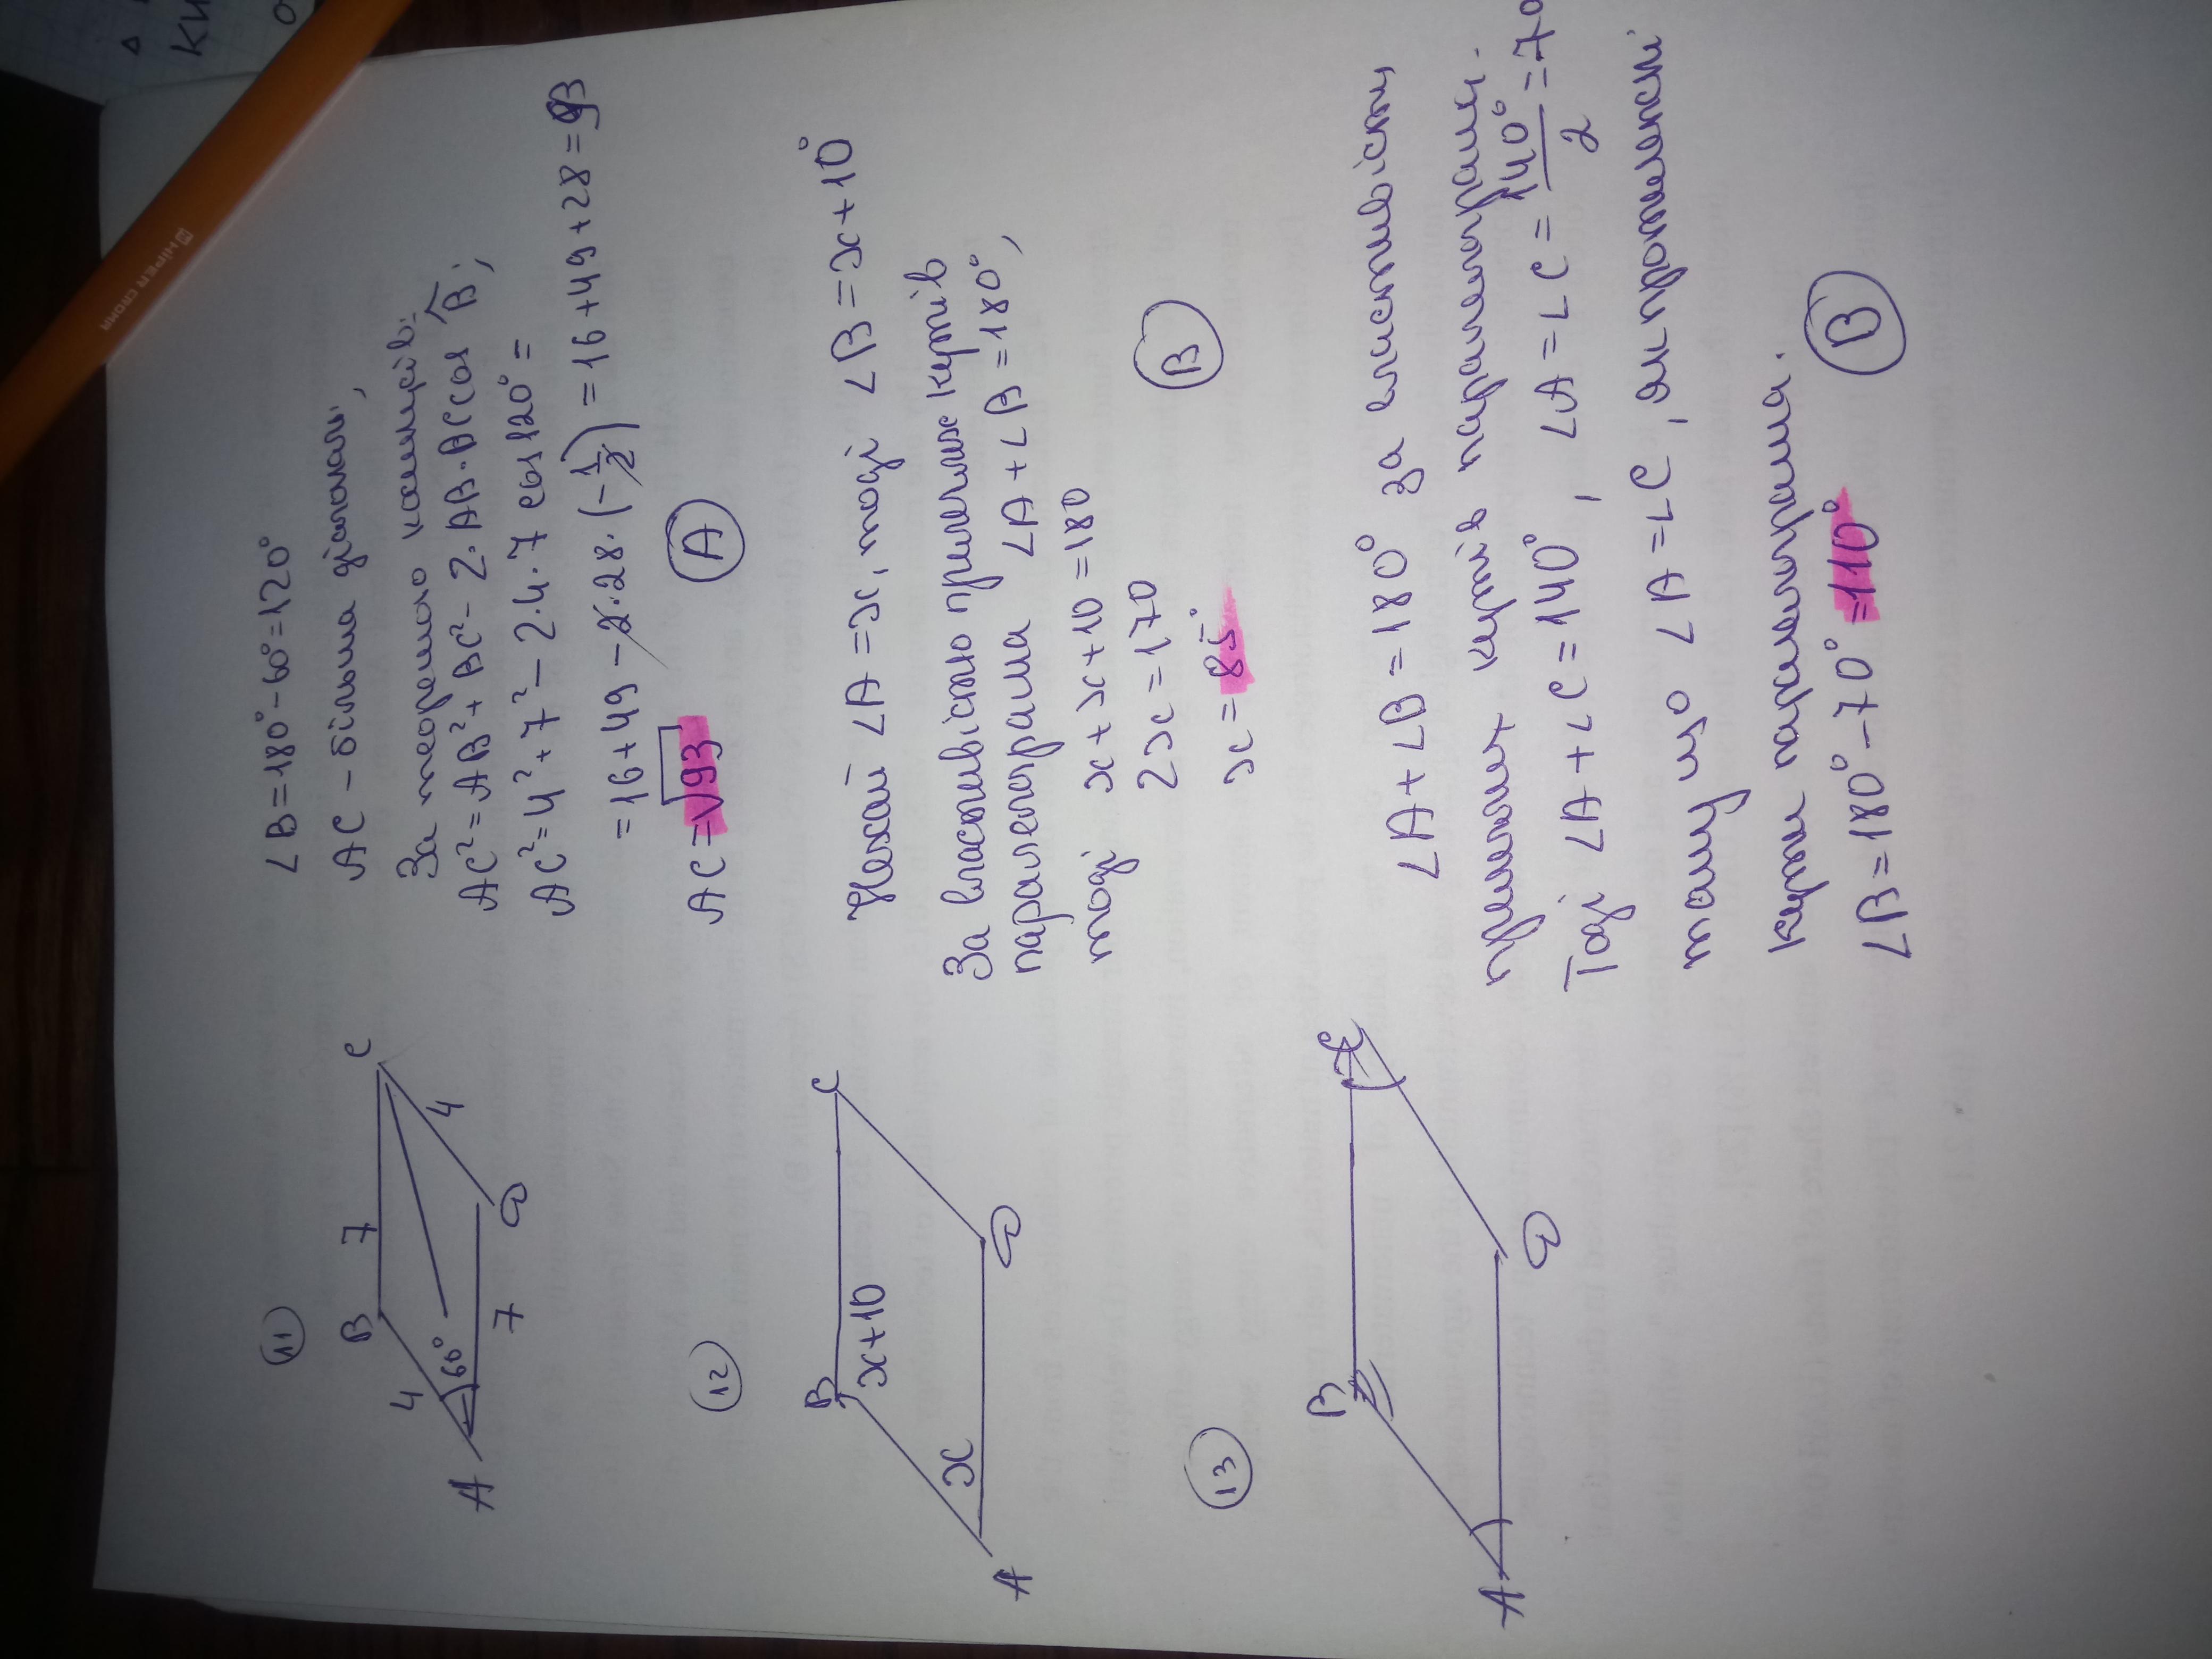 11
B
7
C
4
60°
4
A
7
D
∠B=180°-60°=120°
AC - більша діагональ,
За теоремою косинусів:
AC²=AB²+BC²-2·AB·BCcos B;
AC²=4²+7²-2·4·7 cos120°=
=16+49-2·28·(-1/2)=16+49+28=93
AC=√93
A
12
B
C
x+10
x
A
D
Нехай ∠A=x, тоді ∠B=x+10°
За властивістю прилеглих кутів
паралелограма ∠A+∠B=180°,
тоді x+x+10=180
2x=170
x=85°
В
13
B
C
A
D
∠A+∠B=180° за властивістю
прилеглих кутів паралелограма.
Тоді ∠A+∠C=140°, ∠A=∠C=140°/2=70
тому що ∠A=∠C, як протилежні
кути паралелограма.
∠B=180°-70°=110°
В
HIPER CROMA
ки